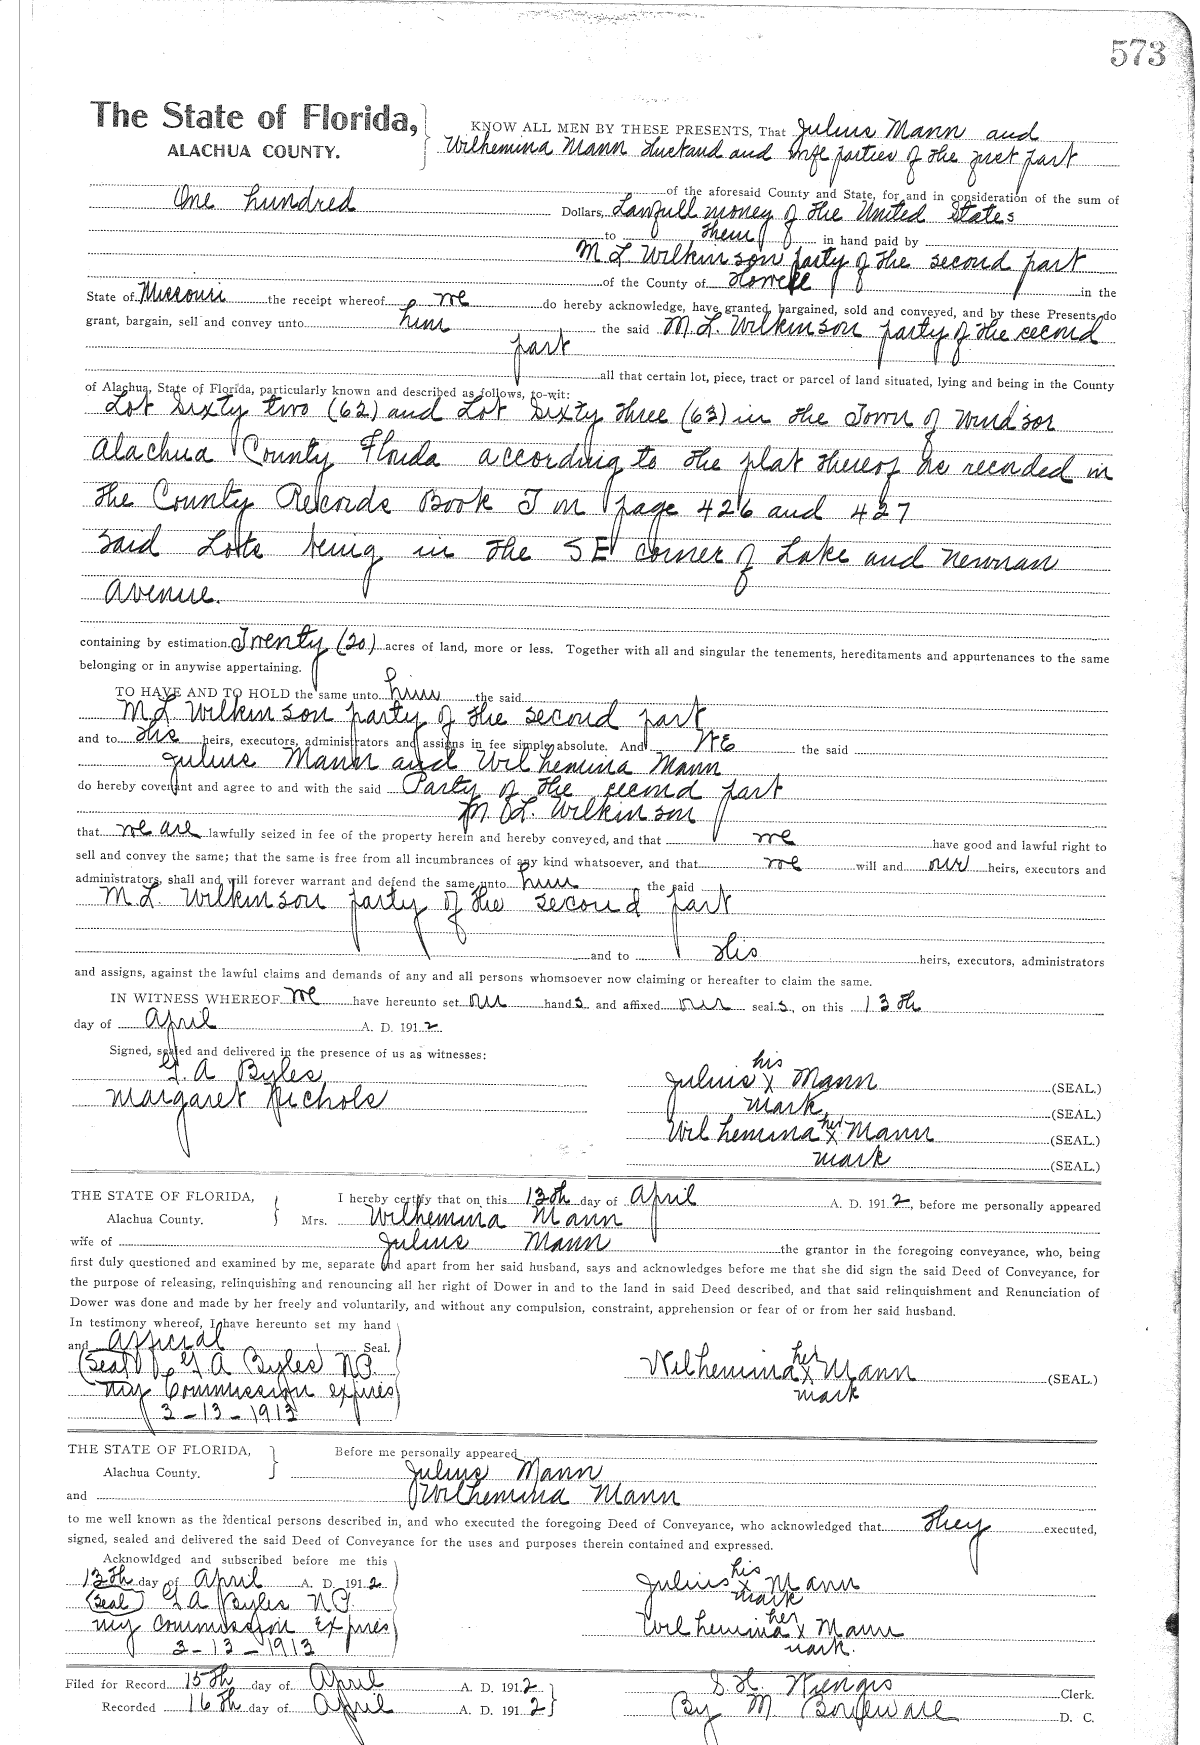 573
The State of Florida,
ALACHUA COUNTY.
KNOW ALL MEN BY THESE PRESENTS, That Julius Mann and
Wilhemina Mann Husband and wife parties of the first part
of the aforesaid County and State, for and in consideration of the sum of
One hundred Dollars, Lawfull money of the United States
to them in hand paid by
M L Wilkinson party of the second part
of the County of Howell in the
State of Missouri the receipt whereof we do hereby acknowledge, have granted, bargained, sold and conveyed, and by these Presents do
grant, bargain, sell and convey unto him the said M.L. Wilkinson party of the second
part
all that certain lot, piece, tract or parcel of land situated, lying and being in the County
of Alachua, State of Florida, particularly known and described as follows, to-wit:
Lot Sixty two (62) and Lot Sixty three (63) in the Town of Windsor
Alachua County Florida according to the plat thereof as recorded in
the County Records Book T on page 426 and 427
said Lots being in the SE corner of Lake and Newnan
Avenue.
containing by estimation Twenty (20) acres of land, more or less. Together with all and singular the tenements, hereditaments and appurtenances to the same
belonging or in anywise appertaining.
TO HAVE AND TO HOLD the same unto him the said
M L Wilkinson party of the second part
and to His heirs, executors, administrators and assigns in fee simple absolute. And WE the said
Julius Mann and Wilhemina Mann
do hereby covenant and agree to and with the said Party of the second part
M L. Wilkinson
that we are lawfully seized in fee of the property herein and hereby conveyed, and that we have good and lawful right to
sell and convey the same; that the same is free from all incumbrances of any kind whatsoever, and that we will and our heirs, executors and
administrators, shall and will forever warrant and defend the same unto him the said
M L. Wilkinson party of the second part
and to His heirs, executors, administrators
and assigns, against the lawful claims and demands of any and all persons whomsoever now claiming or hereafter to claim the same.
IN WITNESS WHEREOF we have hereunto set our hands and affixed our seals, on this 13th
day of April A. D. 1912.
Signed, sealed and delivered in the presence of us as witnesses:
G. A Byles
Margaret Nichols
his
Julius x Mann (SEAL.)
mark (SEAL.)
Wilhemina her x Mann (SEAL.)
mark (SEAL.)
THE STATE OF FLORIDA,
Alachua County.
I hereby certify that on this 13th day of April A. D. 1912, before me personally appeared
Mrs. Wilhemina Mann
wife of Julius Mann the grantor in the foregoing conveyance, who, being
first duly questioned and examined by me, separate and apart from her said husband, says and acknowledges before me that she did sign the said Deed of Conveyance, for
the purpose of releasing, relinquishing and renouncing all her right of Dower in and to the land in said Deed described, and that said relinquishment and Renunciation of
Dower was done and made by her freely and voluntarily, and without any compulsion, constraint, apprehension or fear of or from her said husband.
In testimony whereof, I have hereunto set my hand
and Official Seal.
(Seal) G A Byles NP.
my Commission expires
3-13-1913
Wilhemina her x Mann (SEAL.)
mark
THE STATE OF FLORIDA,
Alachua County.
Before me personally appeared
Julius Mann
and Wilhemina Mann
to me well known as the identical persons described in, and who executed the foregoing Deed of Conveyance, who acknowledged that they executed,
signed, sealed and delivered the said Deed of Conveyance for the uses and purposes therein contained and expressed.
Acknowldged and subscribed before me this
13th day of April A. D. 1912
(Seal) G A Byles NP.
my commission Expires
3-13-1913
his
Julius x Mann
mark
Wilhemina her x Mann
mark.
Filed for Record 15th day of April A. D. 1912
Recorded 16th day of April A. D. 1912
S. H. Wienges Clerk.
By M D. C.